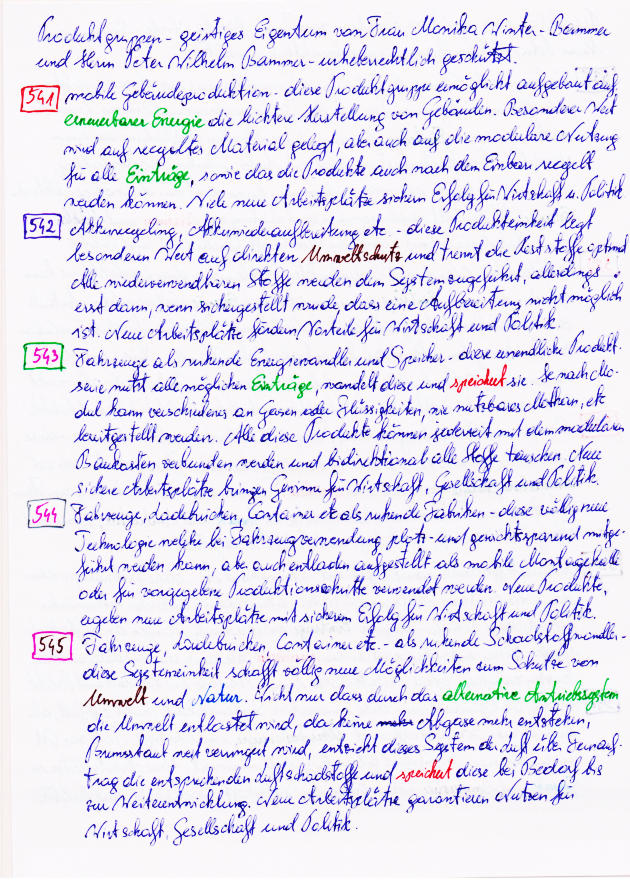 Produktgruppen - geistiges Eigentum von Frau Monika Winter - Bammer
und Herrn Peter Wilhelm Bammer - urheberrechtlich geschützt.
541 mobile Gebäudeproduktion - diese Produktgruppe ermöglicht aufgebaut auf
erneuerbarer Energie die leichtere Herstellung von Gebäuden. Besonderer Wert
wird auf recyceltes Material gelegt, aber auch auf die modulare Nutzung
für alle Einträge, sowie das die Produkte auch nach dem Einbau recycelt
werden können. Viele neue Arbeitsplätze sichern Erfolg für Wirtschaft u. Politik
542 Akkurecycling, Akkuwiederaufbereitung etc - diese Produkteinheit legt
besonderen Wert auf direkten Umweltschutz und trennt die Reststoffe optimal
Alle wiederverwendbaren Stoffe werden dem System zugeführt, allerdings
erst dann, wenn sichergestellt wurde, dass eine Aufbereitung nicht möglich
ist. Neue Arbeitsplätze fördern Vorteile für Wirtschaft und Politik.
543 Fahrzeuge als ruhende Energiewandler und Speicher - diese unendliche Produkt-
serie nutzt alle möglichen Einträge, wandelt diese und speichert sie. Je nach Mo-
dul kann verschiedenes an Gasen oder Flüssigkeiten, wie nutzbares Methan, etc
bereitgestellt werden. Alle diese Produkte können jederzeit mit dem modularen
Baukasten verbunden werden und bidirektional alle Stoffe tauschen. Neue
sichere Arbeitsplätze bringen Gewinne für Wirtschaft, Gesellschaft und Politik.
544 Fahrzeuge, Ladebrücken, Container etc als ruhende Fabriken - diese völlig neue
Technologie welche bei Fahrzeugverwendung platz- und gewichtsparend mitge-
führt werden kann, aber auch entladen aufgestellt als mobile Montagehalle
oder für vorgegebene Produktionsschritte verwendet werden. Neue Produkte,
ergeben neue Arbeitsplätze mit sicherem Erfolg für Wirtschaft und Politik.
545 Fahrzeuge, Ladebrücken, Container etc. - als ruhende Schadstoffwandler -
diese Systemeinheit schafft völlig neue Möglichkeiten zum Schutze von
Umwelt und Natur. Nicht nur dass durch das alternative Antriebssystem
die Umwelt entlastet wird, da keine mehr Abgase mehr entstehen,
Bremsstaub weit verringert wird, entzieht dieses System der Luft über Fernauf-
trag die entsprechenden Luftschadstoffe und speichert diese bei Bedarf bis
zur Weiterentwicklung. Neue Arbeitsplätze garantieren Nutzen für
Wirtschaft, Gesellschaft und Politik.